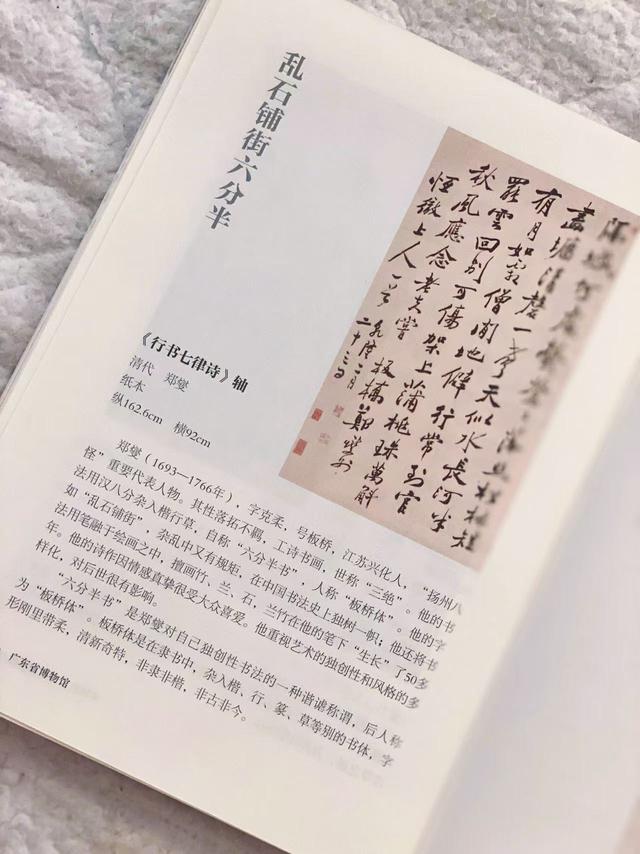 乱石铺街六分半
有月如霜僧閒地僻行常到官
罷雲回別可傷架上蒲桃珠萬斛
秋風應念老夫嘗
上人
板橋鄭燮
《行书七律诗》轴
清代 郑燮
纸本
纵162.6cm 横92cm
郑燮（1693—1766年），字克柔，号板桥，江苏兴化人，“扬州八
怪”重要代表人物。其性落拓不羁，工诗书画，世称“三绝”。他的书
法用汉八分杂入楷行草，自称“六分半书”，人称“板桥体”。他的字
如“乱石铺街”，杂乱中又有规矩，在中国书法史上独树一帜；他还将书
法用笔融于绘画之中，擅画竹、兰、石，兰竹在他的笔下“生长”了50多
年。他的诗作因情感真挚很受大众喜爱。他重视艺术的独创性和风格的多
样化，对后世很有影响。
“六分半书”是郑燮对自己独创性书法的一种谐谑称谓，后人称
为“板桥体”。板桥体是在隶书中，杂入楷、行、篆、草等别的书体，字
形刚里带柔，清新奇特，非隶非楷，非古非今。
广东省博物馆